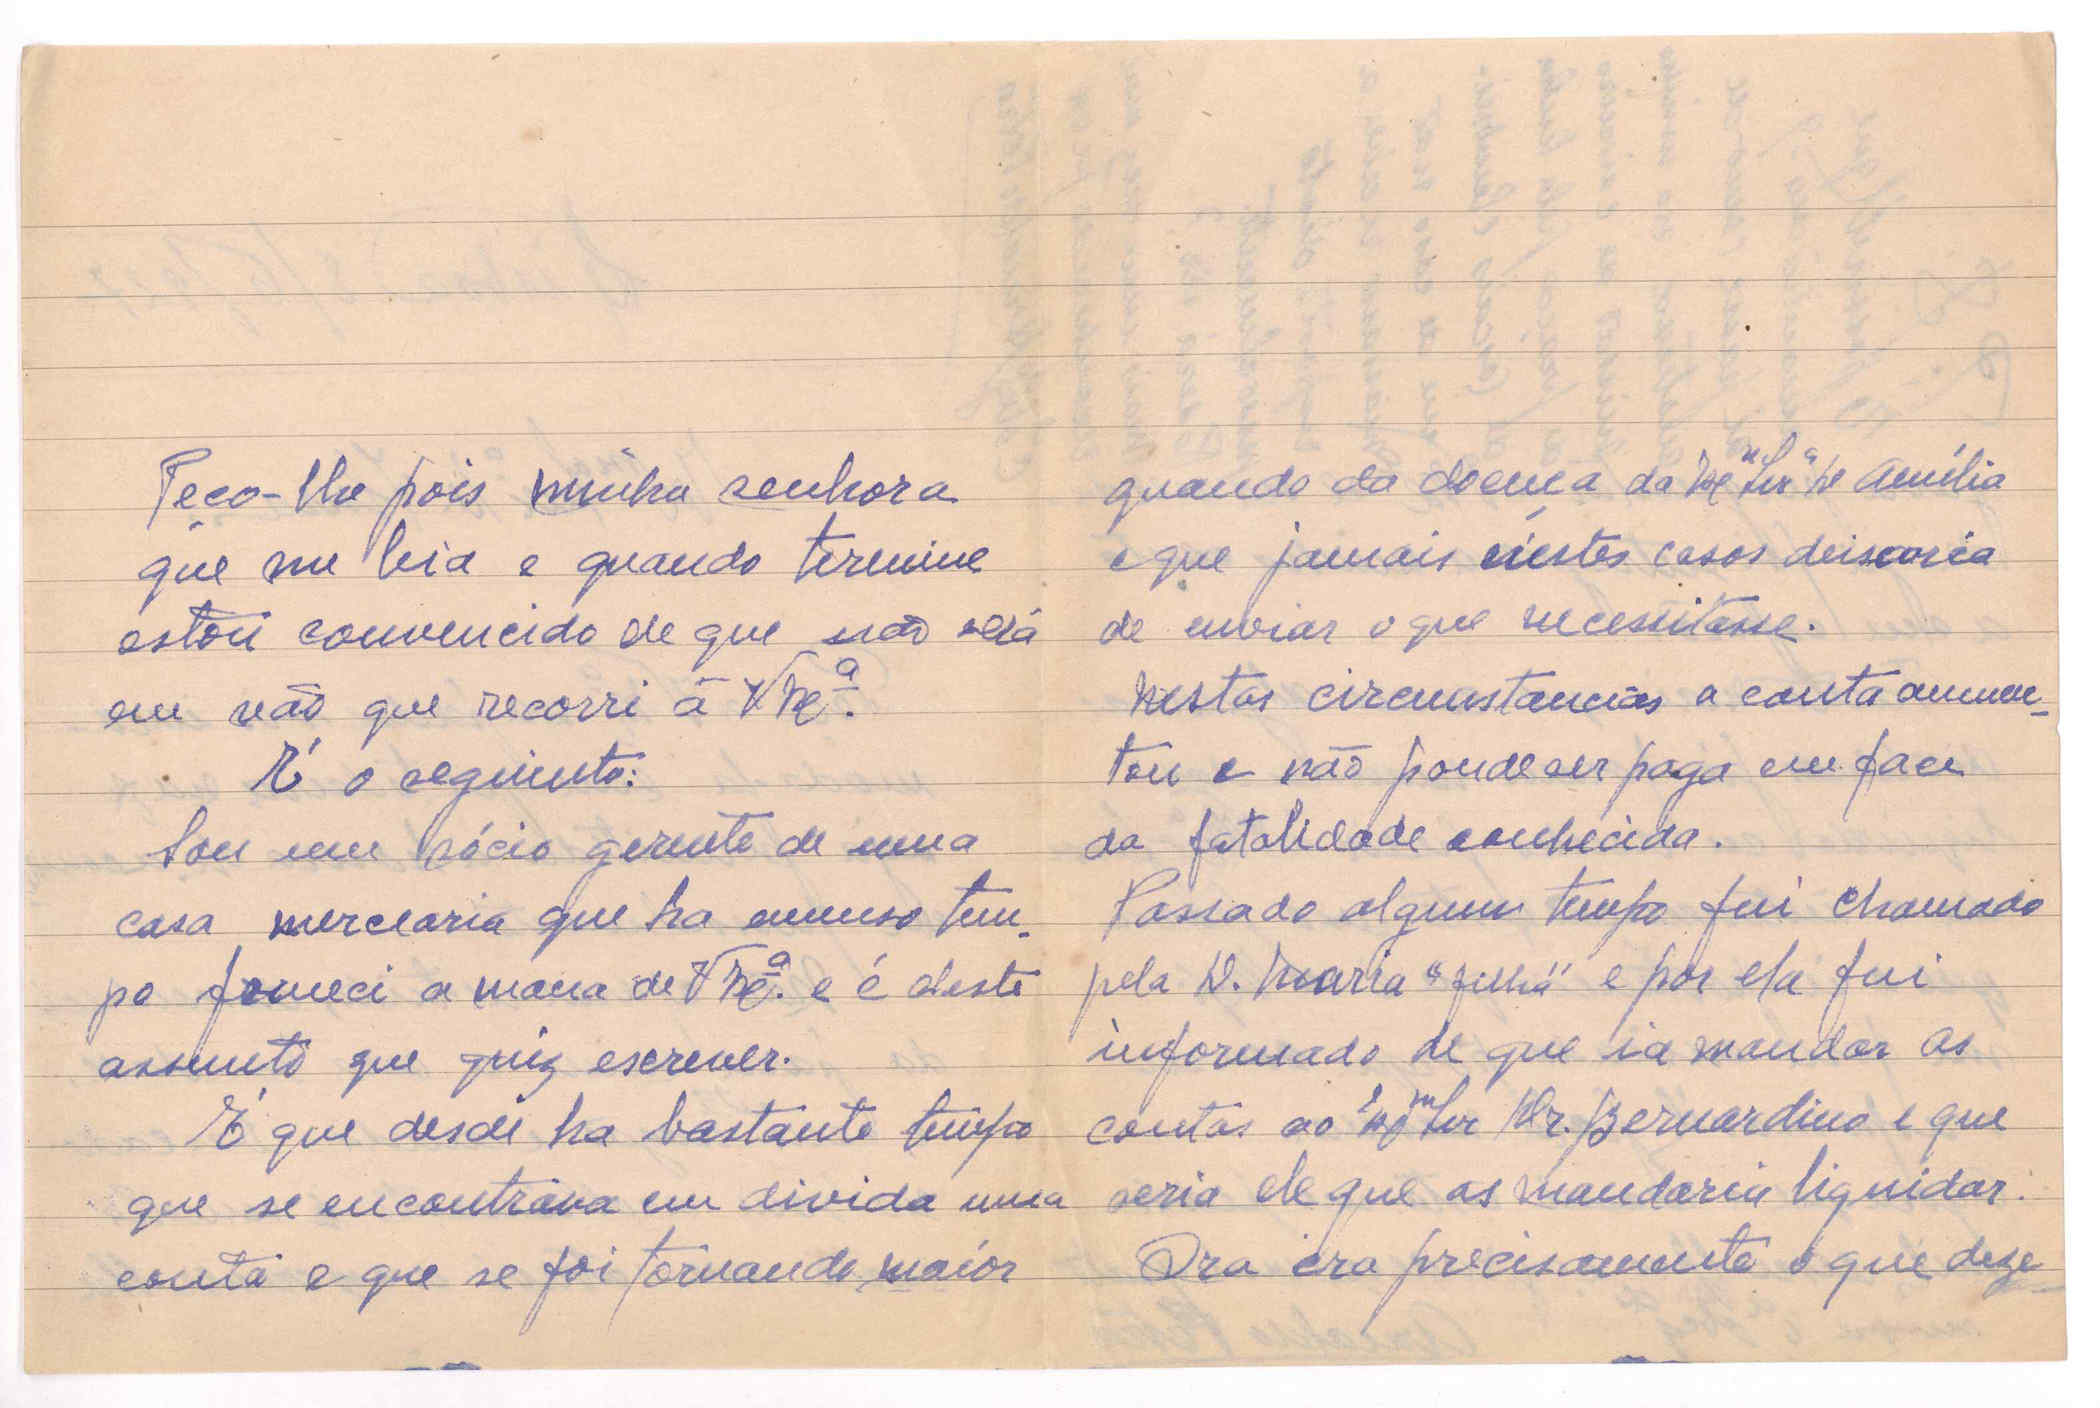 Peço-lhe pois minha senhora
que me leia e quando termine
estou convencido de que não será
em vão que recorri á V Exª.
É o seguinte:
Sou um sócio gerente de uma
casa mercearia que ha imenso tem-
po forneci a mana de V Exª. e é deste
assunto que quiz escrever.
É que desde ha bastante tempo
que se encontrava em divida uma
conta e que se foi tornando maior
quando da doença da Exma Srª D Amilia
e que jamais n'estes casos deixaria
de enviar o que necessitasse.
Nestas circunstancias a conta aumen-
tou e não poude ser paga em face
da fatalidade conhecida.
Passado algum tempo fui chamado
pela D. Maria "filha" e por ela fui
informado de que ia mandar as
contas ao Exmo Snr Dr. Bernardino e que
seria ele que as mandaria liquidar.
Ora era precisamente o que deze-